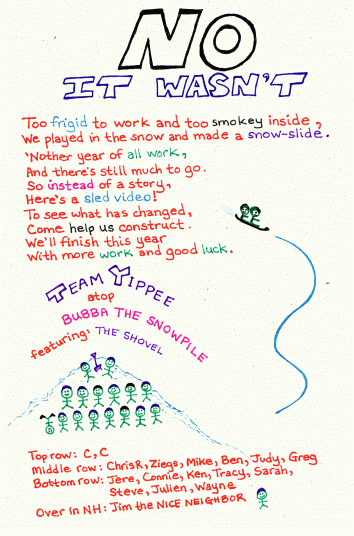 NO
IT WASN'T
Too frigid to work and too smokey inside,
We played in the snow and made a snow-slide.
'Nother year of all work,
And there's still much to go.
So instead of a story,
Here's a sled video!
To see what has changed,
Come help us construct.
We'll finish this year
With more work and good luck.
TEAM YIPPEE
atop
BUBBA THE SNOWPILE
featuring: THE SHOVEL
Top row: C, C
Middle row: Chris R, Ziegs, Mike, Ben, Judy, Greg
Bottom row: Jere, Connie, Ken, Tracy, Sarah,
Steve, Julien, Wayne
Over in NH: Jim the NICE NEIGHBOR